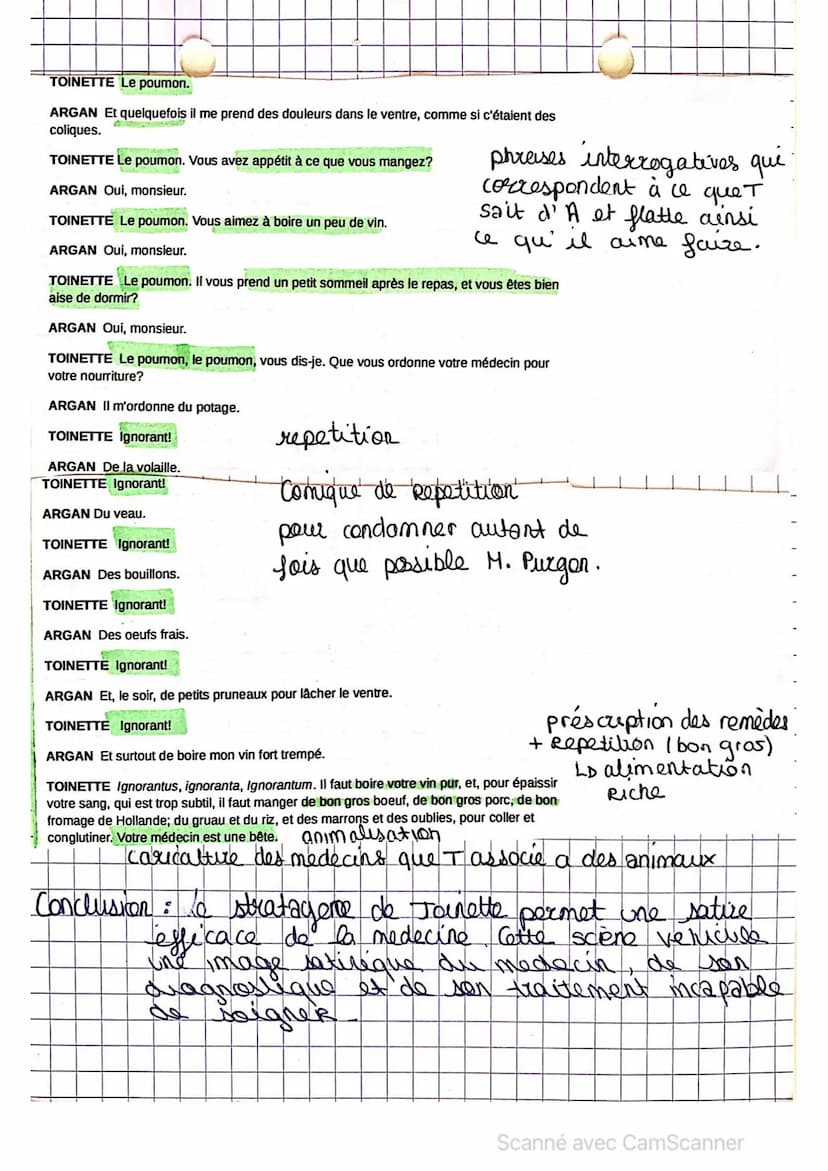 TOINETTE Le poumon.
ARGAN Et quelquefois il me prend des douleurs dans le ventre, comme si c'étaient des
coliques.
TOINETTE Le poumon. Vous avez appétit à ce que vous mangez?
ARGAN Oui, monsieur.
TOINETTE Le poumon. Vous aimez à boire un peu de vin.
ARGAN Oui, monsieur.
phrases interrogatives qui
correspondent à ce que T
sait d'A et flatte ainsi
ce qu'il aime faire.
TOINETTE Le poumon. Il vous prend un petit sommeil après le repas, et vous êtes bien
aise de dormir?
ARGAN Oui, monsieur.
TOINETTE Le poumon, le poumon, vous dis-je. Que vous ordonne votre médecin pour
votre nourriture?
ARGAN Il m'ordonne du potage.
TOINETTE Ignorant!
repetition
ARGAN De la volaille.
TOINETTE Ignorant!
ARGAN Du veau.
TOINETTE Ignorant!
ARGAN Des bouillons.
Comique de repetition
pour condamner autant de
fois que possible M. Purgon.
TOINETTE Ignorant!
ARGAN Des oeufs frais.
TOINETTE Ignorant!
ARGAN Et, le soir, de petits pruneaux pour lâcher le ventre.
TOINETTE Ignorant!
ARGAN Et surtout de boire mon vin fort trempé.
préscription des remèdes
+ Repetition (bon gros)
↳ alimentation
Riche
TOINETTE Ignorantus, ignoranta, Ignorantum. Il faut boire votre vin pur, et, pour épaissir
votre sang, qui est trop subtil, il faut manger de bon gros boeuf, de bon gros porc, de bon
fromage de Hollande; du gruau et du riz, et des marrons et des oublies, pour coller et
conglutiner. Votre médecin est une bête. animalisation
caricature des medecins que T associe a des animaux
Conclusion : le stratageme de Toinette permet une satire
efficace de la medecine. Cette scène vehicule
une image satirique du medecin, de son
diagnostique et de son traitement incapable
de soigner.
Scanné avec CamScanner